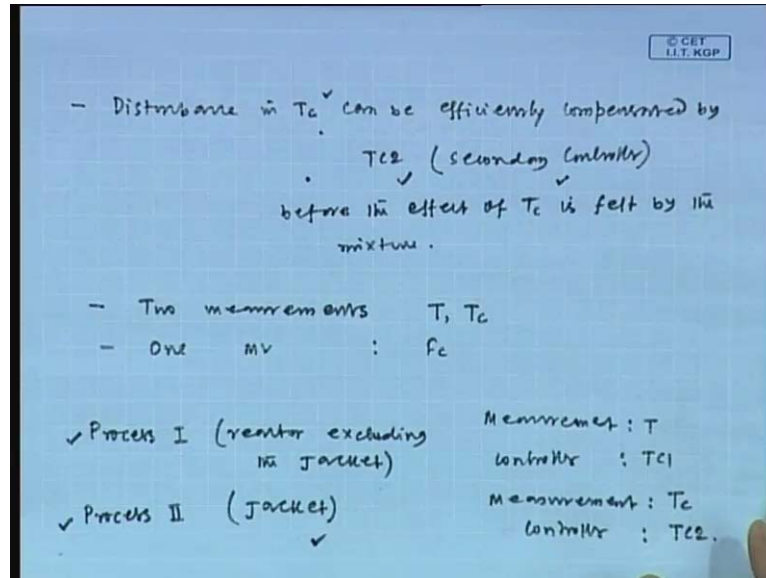 © CET
I.I.T. KGP
- Disturbance in Tc can be efficiently compensated by
TC2 (secondary controller)
before the effect of Tc is felt by the
mixture.
- Two measurements T, Tc
- One MV : Fc
Process I (reactor excluding
the Jacket)
Measurement : T
controller : TC1
Process II (Jacket)
Measurement : Tc
controller : TC2.